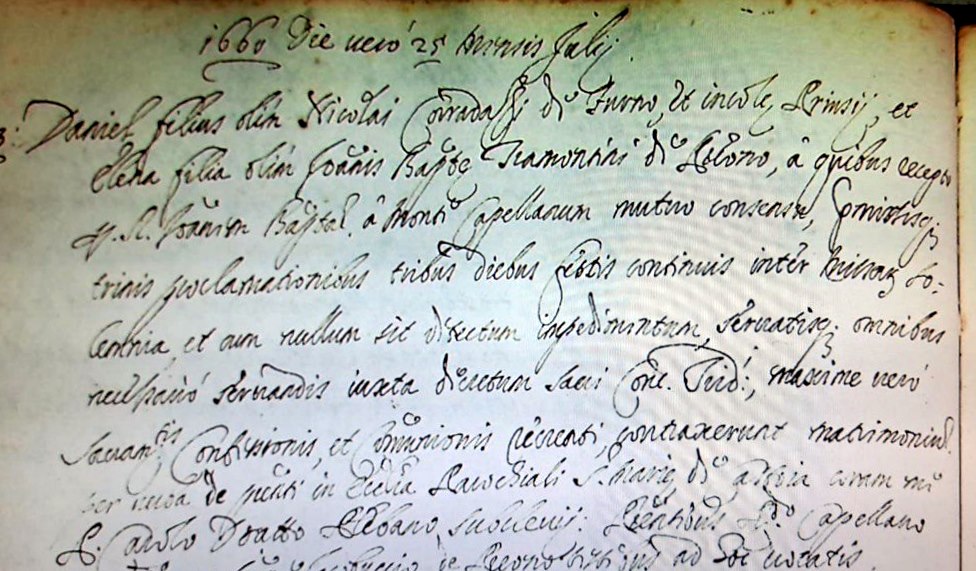 1660 Die vero 25 Mensis Julij
Daniel filius olim Nicolai Corradassi de Furno, et incolę Prinsij, et
Elena filia olim Joannis Baptę Tramontini de, à quibus recepto
p. R. Joannem Baptam à Monte Capellanum mutuo consensu, premissisq;
trinis proclamationibus tribus diebus festis continuis inter Missarum so-
lemnia, et cum nullum sit detectum impedimentum, servatisq; omnibus
necessario servandis iuxta decretum Sacri Conc. Trid:, maxime vero
Sacramtis Confessionis, et Communionis recreati, contraxerunt matrimonium
per verba de pnti in Ecclia Parochiali S. Marię de coram me
P. Carolo Plebano; Pręsentibus Rdo Capellano
de testibus ad hoc vocatis